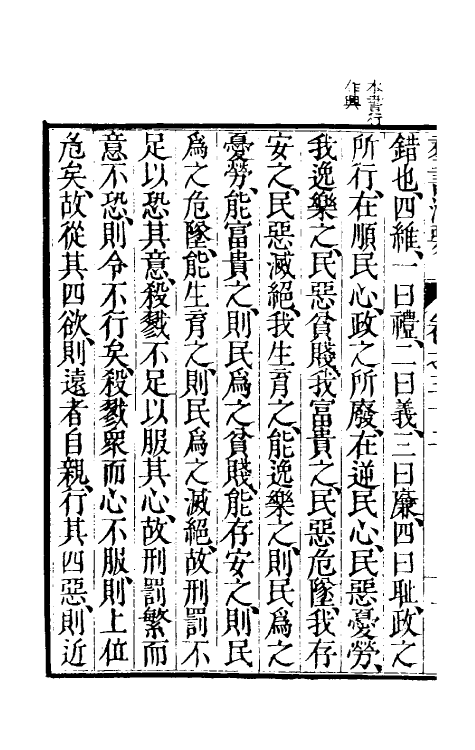 本書行
作興
錯也、四維、一曰禮、二曰義、三曰廉、四曰耻、政之
所行、在順民心、政之所廢、在逆民心、民惡憂勞、
我逸樂之、民惡貧賤、我富貴之、民惡危墜、我存
安之、民惡滅絕、我生育之、能逸樂之、則民爲之
憂勞、能富貴之、則民爲之貧賤、能存安之、則民
爲之危墜、能生育之、則民爲之滅絕、故刑罰不
足以恐其意、殺戮不足以服其心、故刑罰繁而
意不恐、則令不行矣、殺戮衆而心不服、則上位
危矣、故從其四欲、則遠者自親、行其四惡、則近